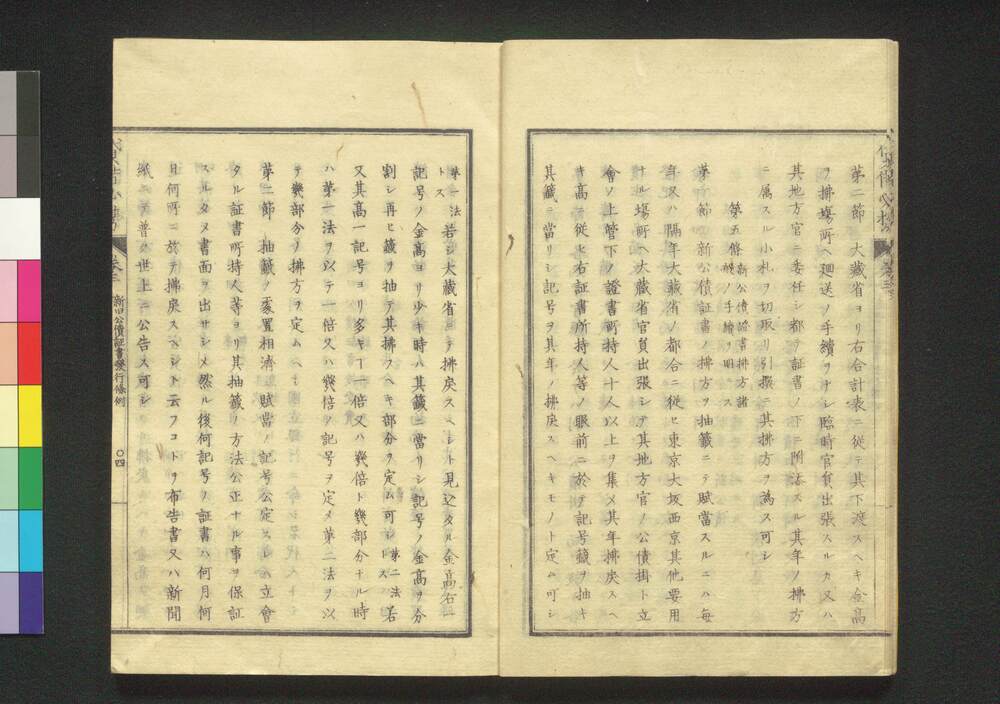 第二節 大藏省ヨリ右合計表ニ従テ其下渡スヘキ金高
ヲ拂塲所ヘ廻送ノ手續ヲナシ臨時官員出張スルカ又ハ
其地方官ニ委任シ都テ証書ノ下ニ附法スル其年ノ拂方
ニ属スル小札ヲ切取リ引換ニ其拂方ヲ為ス可シ
第五條 新公債證書拂方諸般ノ手續ヲ明ス
第一節 新公債証書ノ拂方ヲ抽籤ニテ賦當スルニハ毎
年又ハ隔年大藏省ノ都合ニ従ヒ東京大坂西京其他要用
ナル塲所ヘ大藏省官員出張シテ其地方官ノ公債掛ト立
會ノ上管下ノ證書所持人十人以上ヲ集メ其年拂戻スヘ
キ高ニ従ヒ右証書所持人等ノ眼前ニ於テ記号籤ヲ抽キ
其籤ニ當リシ記号ヲ其年ノ拂戻スヘキモノト定ム可シ
第一法 若シ大藏省ニテ拂戻スヘシト見込タル金高右ノ
トス
記号ノ金高ヨリ少キ時ハ其籤ニ當リシ記号ノ金高ヲ分
割シ再ヒ籤ヲ抽テ其拂フヘキ部分ヲ定ム可シ 第二法トス 若
又其高一記号ヨリ多キ一倍又ハ幾倍ト幾部分ナル時
ハ第一法ヲ以テ一倍又ハ幾倍ノ記号ヲ定メ第二法ヲ以
テ幾部分ノ拂方ヲ定ムヘシ
第二節 抽籤ノ処置相濟ミ賦當ノ記号公定スレハ立會
タル証書所持人等ヨリ其抽籤ノ方法公正ナル事ヲ保証
スルタメ書面ヲ出サシメ然ル後何記号ノ証書ハ何月何
日何所ニ於テ拂戻スヘシト云フコトヲ布告書又ハ新聞
紙ニテ普ク世上ニ公告ス可シ
卷三 新旧公債証書發行條例
〇四